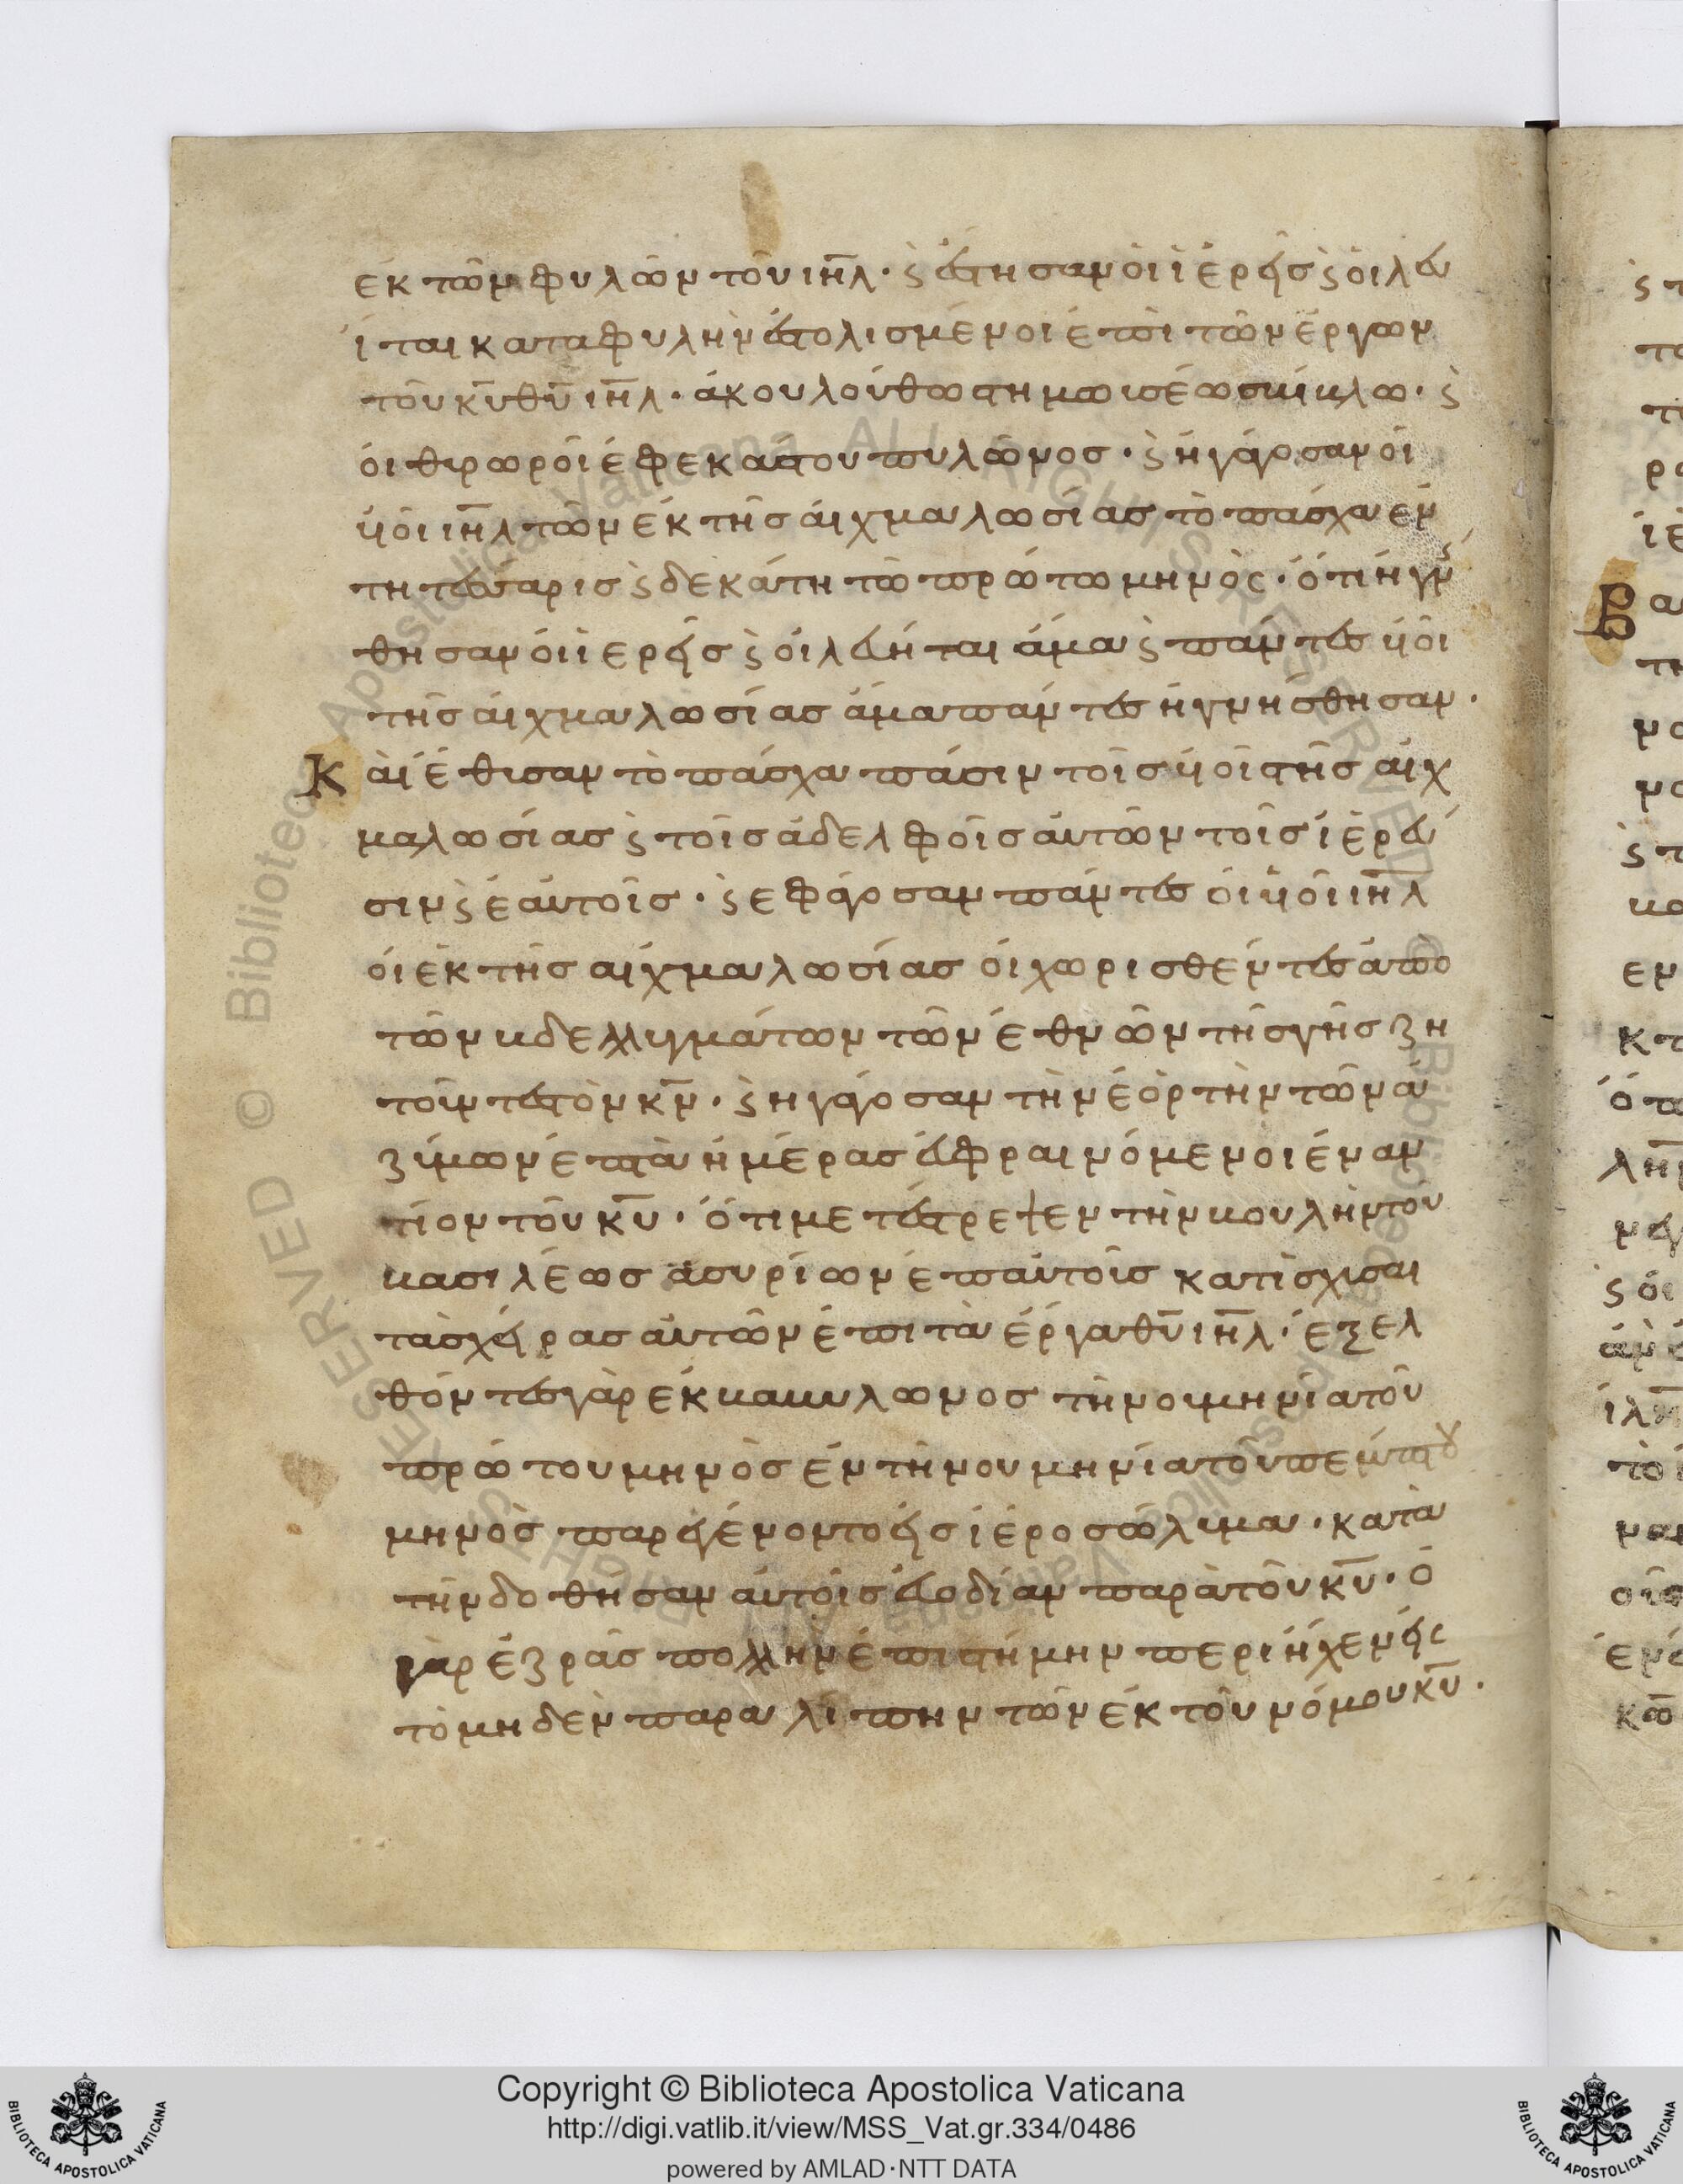 ἐκ τῶν φυλῶν τοῦ ιη̅λ· ϛ ἔστησαν ὁι ἱερεῖσ ϛ ὁι λευ
ίται κατα φυλὴν ἐστολισμένοι ἐπὶ τῶν ἔργων
τοῦ κ̅υ̅ θ̅υ̅ ιη̅λ· ἀκουλούθωστη μωϊσέωσ βίβλω· ϛ
ὁι θυρωροὶ ἐφεκάστου πυλῶνοσ· ϛ ἠγάγοσαν ὁι
ὑοι ιη̅λ τῶν ἐκ τῆσ ἀιχμαλωσίασ τὸ πάσχα ἐν
τη τέσσαρισ ϛ δεκάτη τῶ πρώτω μηνὸς· ὅτι ἡγνίσ
θησαν ὁι ἱερεῖσ ϛ ὁι λευήται ἅμα ϛ πάντεσ ὑοι
τῆσ ἀιχμαλωσίασ ἅμα πάντεσ ἡγνήσθησαν·
Κὰι ἔθισαν τὸ πάσχα πάσιν τοῖσ ὑοῖσ τῆσ ἀιχ
μαλωσίασ ϛ τοῖσ ἀδελφοῖσ ἀυτῶν τοῖσ ἱερεῦ
σιν ϛ ἑαυτοῖσ· ϛ εφάγοσαν πάντεσ ὁι ὑοι ιη̅λ
ὁι ἐκ τῆσ αἰχμαλωσίασ ὁι χωρισθέντεσ ἀπὸ
τῶν βδελλυγμάτων τῶν ἐθνῶν τῆσ γῆσ ζη
τοῦντεσ τὸν κ̅ν̅· ϛ ηγάγοσαν τὴν ἑὸρτὴν τῶν ἀ
ζύμων ἑπτὰ ἡμέρασ ἐυφραινόμενοι ἐναν
τίον τοῦ κ̅υ̅· ὅτι μετέστρεψεν τὴν βουλὴν τοῦ
βασιλέωσ ἀσυρίων ἐπαυτοῖσ κατισχῖσαι
τὰσ χεῖρασ ἀυτῶν ἐπι τὰ ἔργα θ̅υ̅ ιη̅λ· ἐξελ
θόντεσ γὰρ ἐκ βαβυλωνοσ τὴν οὑμηνίὰ τοῦ
πρώτου μηνὸσ ἐν τὴ νουμηνίὰ τοῦ πέμπτου
μηνὸσ παρεγένοντο εἰσ ἱεροσώλυμα· κατὰ
τὴν δοθησαν ἀυτοῖσ ἐυοδίαν παρὰ τοῦ κ̅υ̅· ὁ
γὰρ ἔζρασ πολλὴν ἐπιστήμην περιῆχεν εἰς
τὸ μηδὲν παραλίπην τῶν ἐκ τοῦ νόμου κ̅υ̅·
Copyright © Biblioteca Apostolica Vaticana
http://digi.vatlib.it/view/MSS_Vat.gr.334/0486
powered by AMLAD·NTT DATA